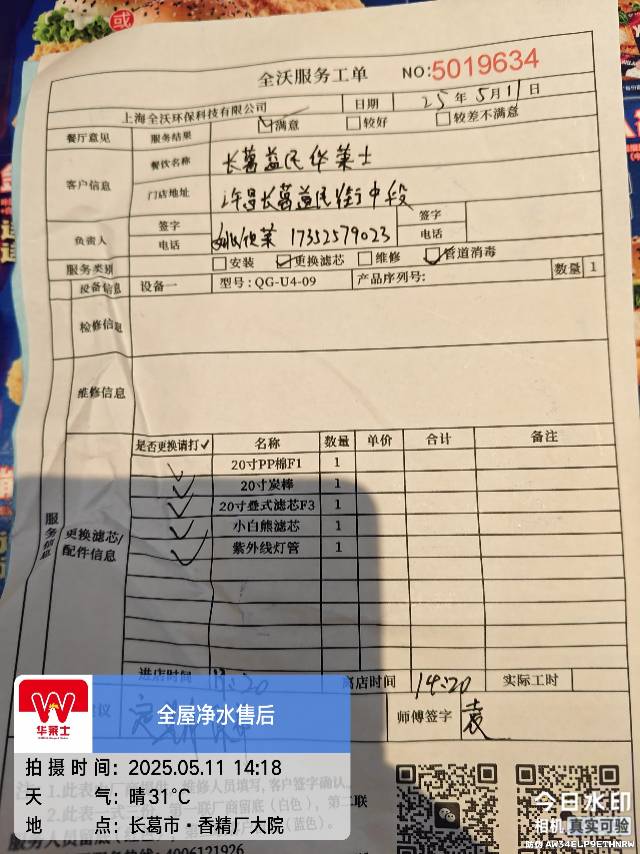 或
全沃服务工单 NO:5019634
上海全沃环保科技有限公司 日期 25年5月11日
餐厅意见 服务结果 满意 较好 较差不满意
客户信息 餐饮名称 长葛益民华莱士
门店地址 许昌长葛益民街中段
负责人 签字 签字
电话 17352579023 电话
服务类别 安装 更换滤芯 维修 管道消毒
设备信息 设备一 型号:QG-U4-09 产品序列号: 数量 1
检修信息
维修信息
服务信息
更换滤芯/配件信息
是否更换请打✓ 名称 数量 单价 合计 备注
✓ 20寸PP棉F1 1
✓ 20寸炭棒 1
✓ 20寸叠式滤芯F3 1
✓ 小白熊滤芯 1
✓ 紫外线灯管 1
进店时间 离店时间 14:20 实际工时
师傅签字 袁
华莱士
全屋净水售后
拍摄时间:2025.05.11 14:18
天气:晴31°C
地点:长葛市·香精厂大院
今日水印
相机 真实可验
防伪 AW34ELP9ETHNRW